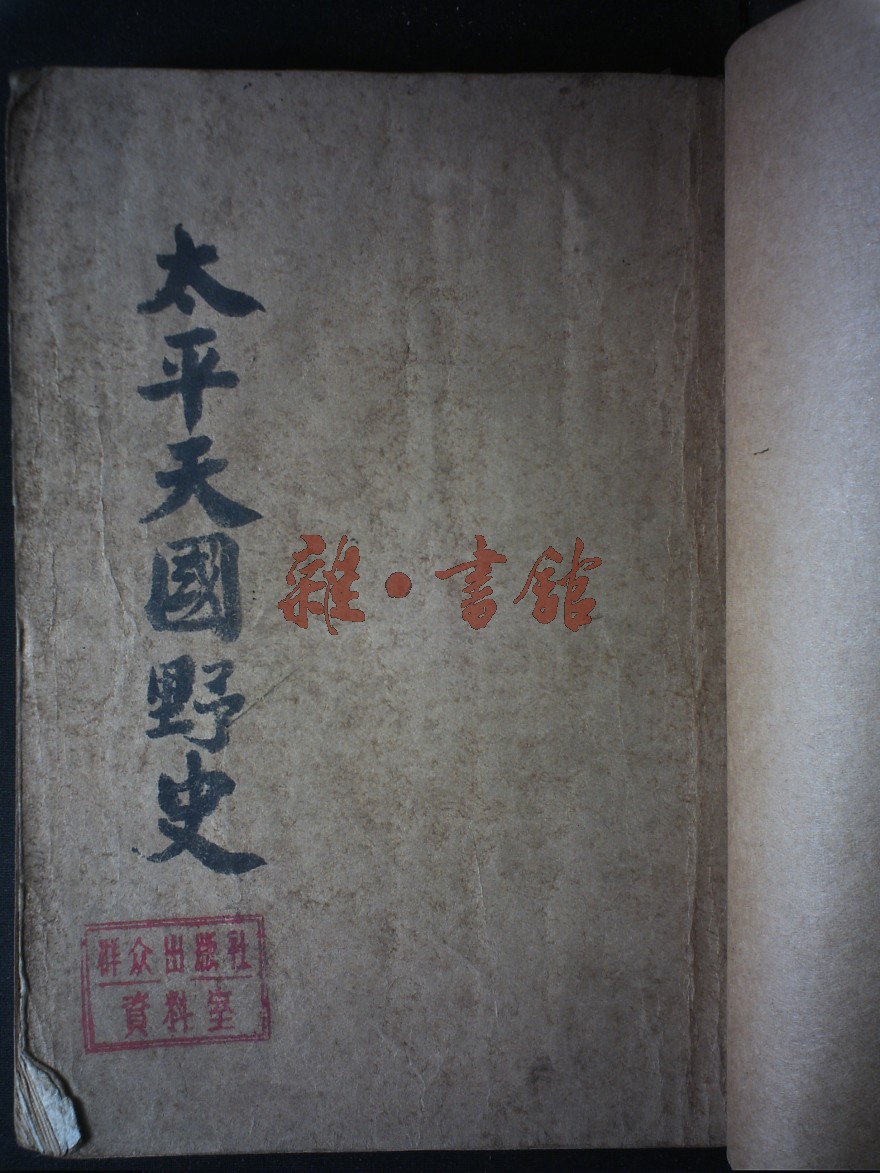 太平天國野史
雜·書館
群众出版社
資料室